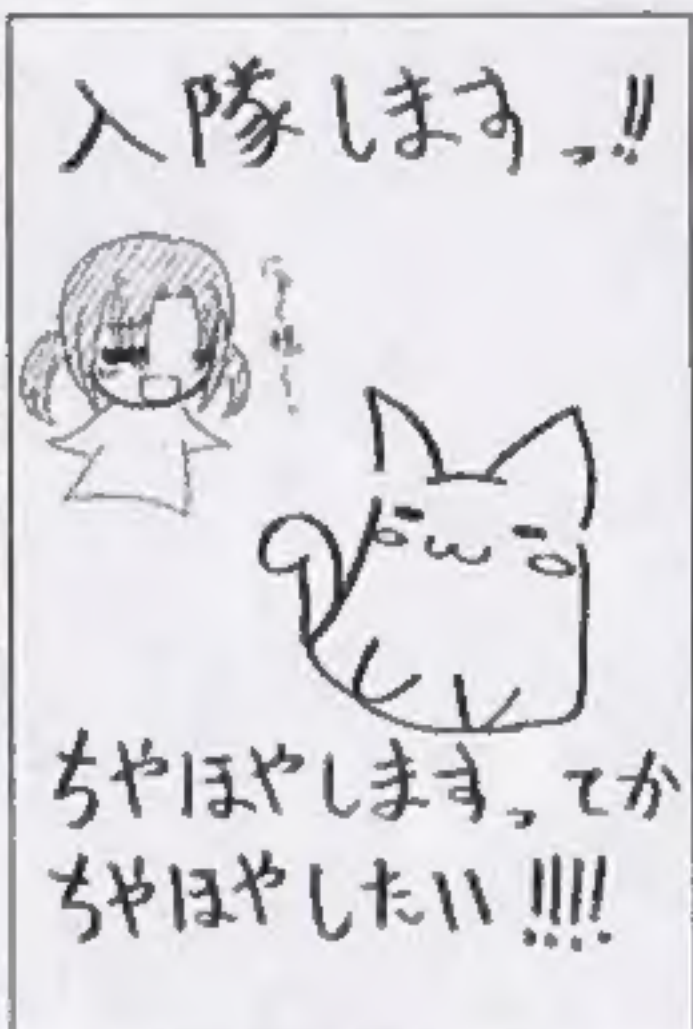 入隊しますっ!!
ちやほやします。ってか
ちやほやしたい!!!!